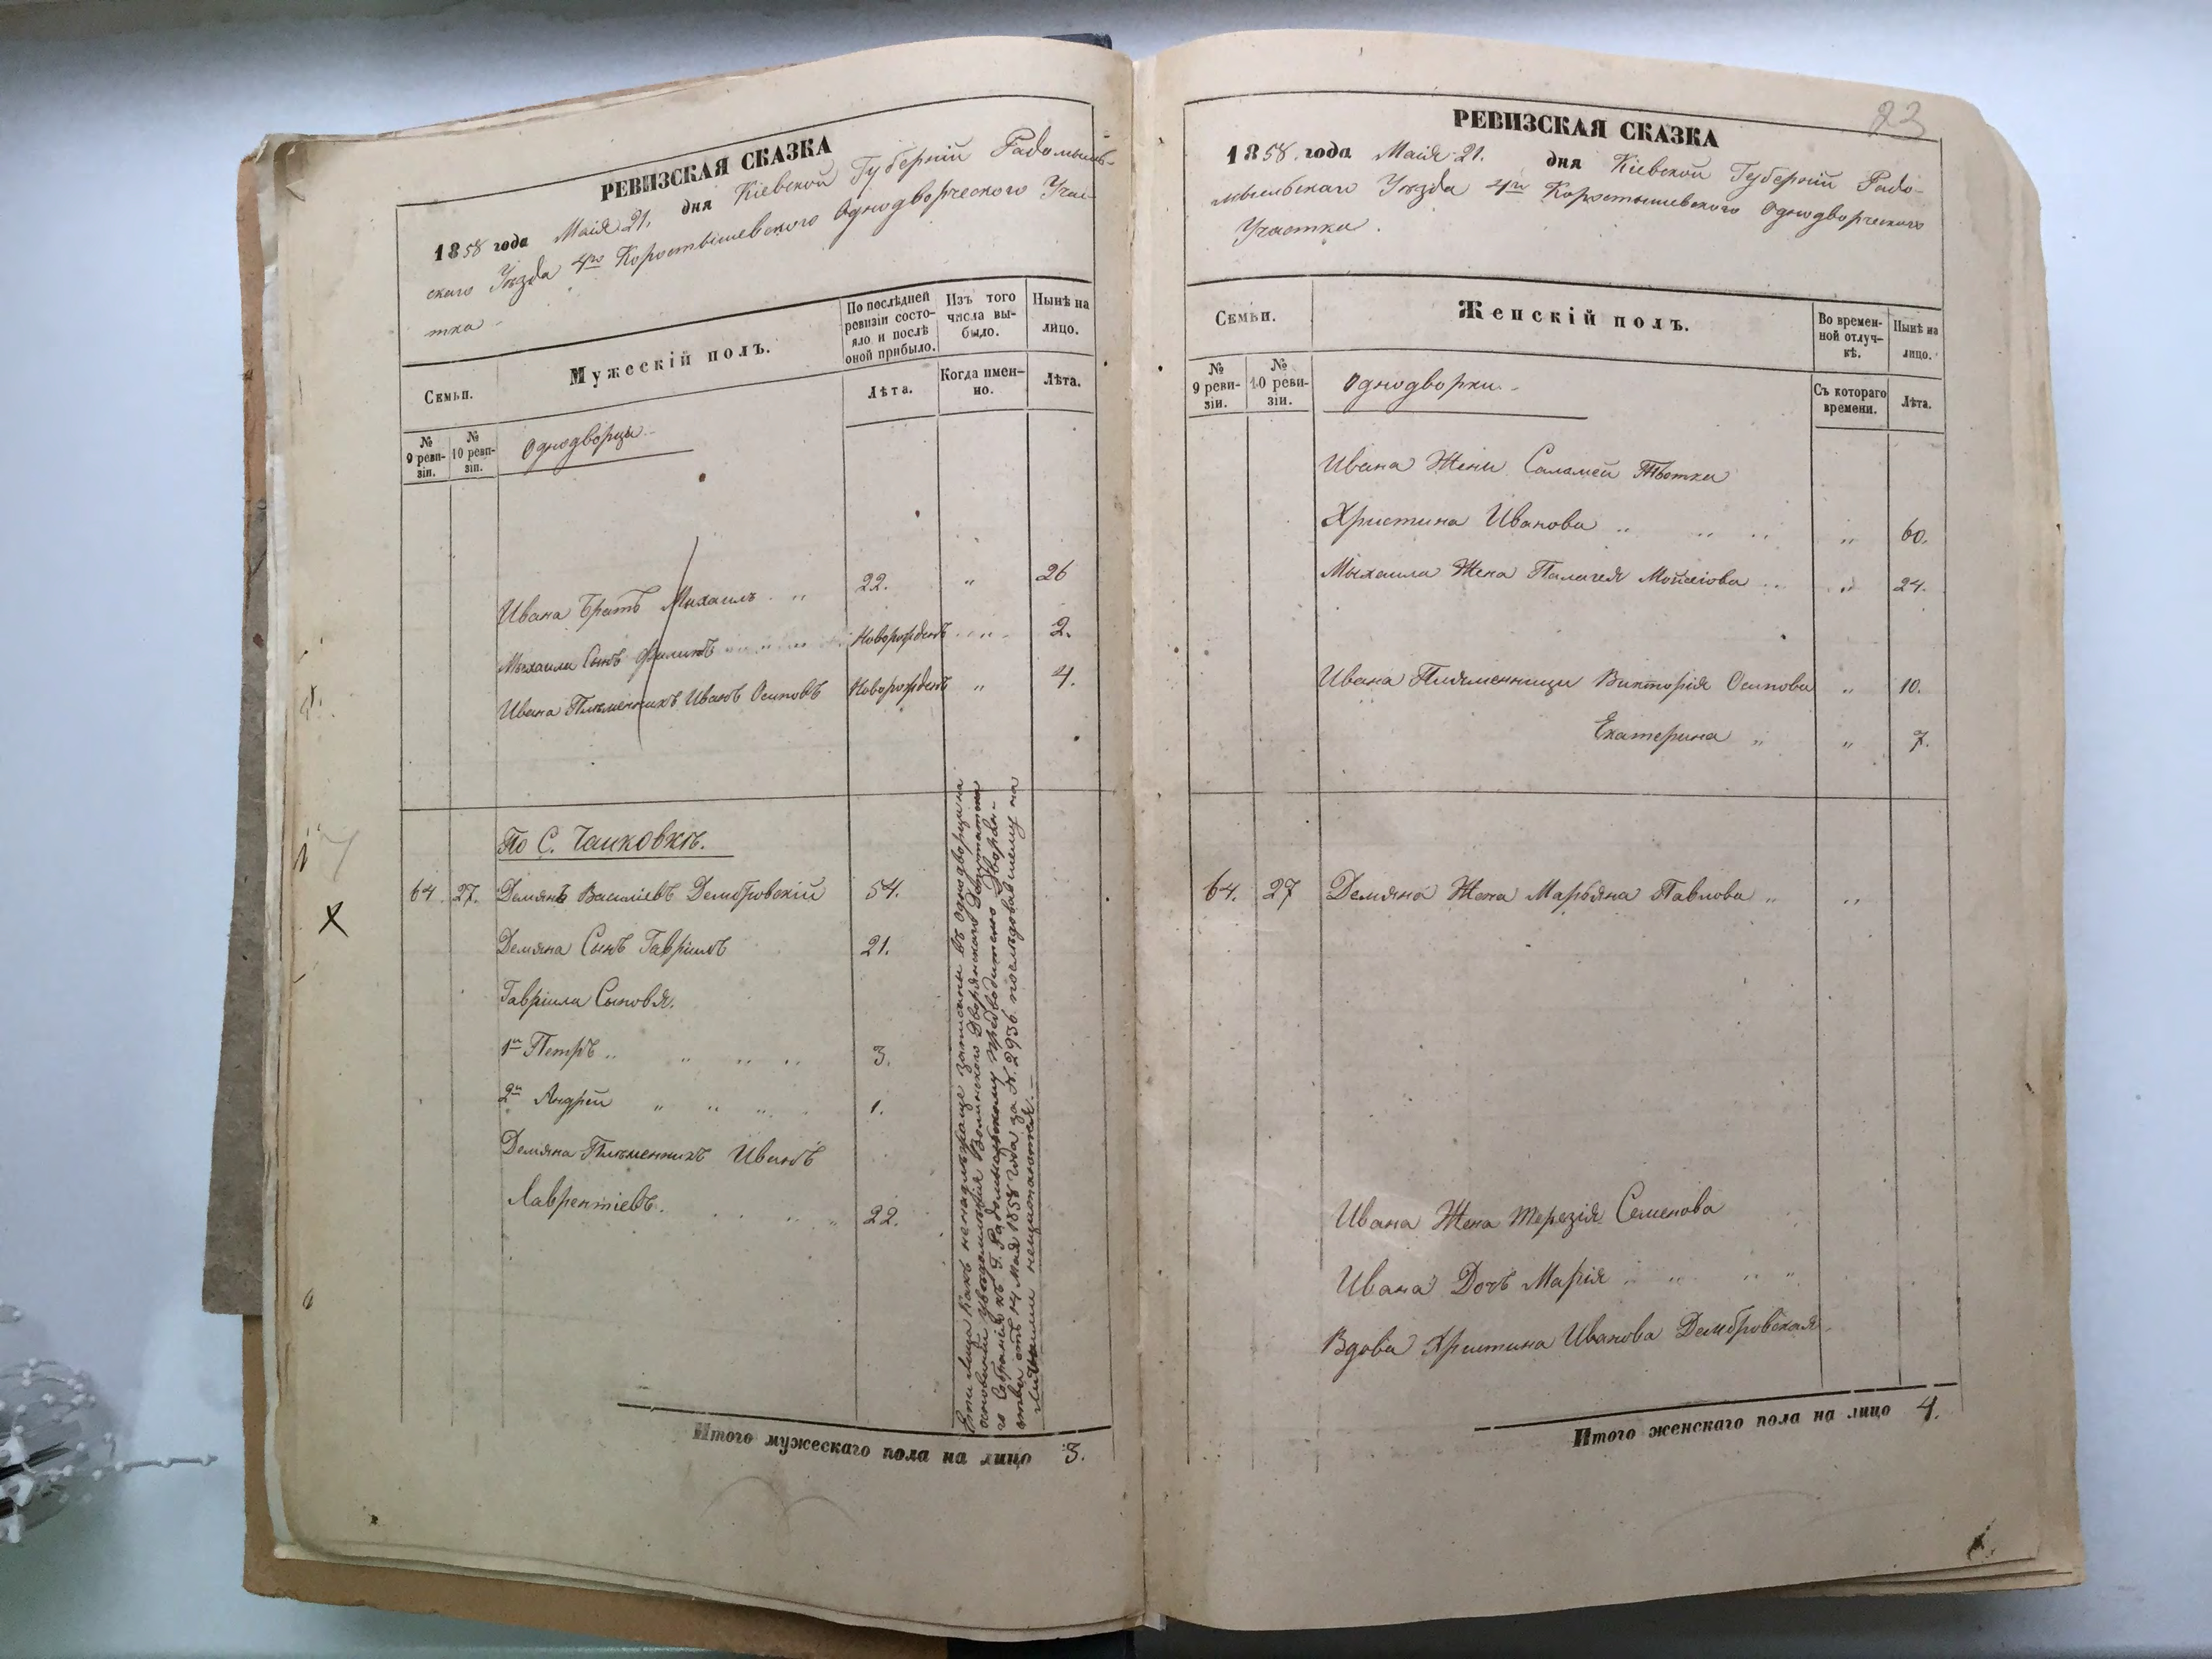 РЕВИЗСКАЯ СКАЗКА
1858 года Маія 21. дня Кіевской Губерніи Радомысль-
скаго Уѣзда 4го Коростышевского Однодворческого Учас-
тка
Семьи.
Мужескій полъ.
По послѣдней ревизіи состо-
яло и послѣ
оной прибыло.
Изъ того числа вы-
было.
Нынѣ на лицо.
№ 9 реви-
зіи.
№ 10 реви-
зіи.
Однодворцы
Лѣта.
Когда имен-
но.
Лѣта.
Ивана Братъ Михаилъ „ 22. „ 26
Михаила Сынъ Филипъ „ „ „ Новорожденъ „ 2.
Ивана Племенникъ Иванъ Осиповъ Новорожденъ „ 4.
По С. Чайковкѣ.
64. 27. Демянъ Василіевъ Дембровскій 54.
Демяна Сынъ Гавріилъ 21.
Гавріила Сыновья.
1й Петръ „ „ „ „ 3.
2й Андрей „ „ „ 1.
Демяна Племенникъ Иванъ
Лаврентіевъ. „ 22.
Эти лица какъ ненадлежаще записаны въ однодворцы на
основаніи увѣдомленія Волынского Дворянского Депутатска
го Собранія къ Г. Радомысльскому предводителю Дворян-
ства отъ 14 Мая 1858 года за №. 2936. послѣдовавшему на
лицо
Итого мужескаго пола на лицо 3.
23
РЕВИЗСКАЯ СКАЗКА
1858. года Маія 21. дня Кіевской Губерніи Радо-
мысльскаго Уѣзда 4го Коростышевского Однодворческого
Участка.
Семьи.
Женскій полъ.
Во времен-
ной отлуч-
кѣ.
Нынѣ на лицо.
№ 9 реви-
зіи.
№ 10 реви-
зіи.
Однодворки.
Съ котораго
времени.
Лѣта.
Ивана Жени Саламеи Тѣотка
Христина Иванова „ „ „ „ 60.
Михаила Жена Палагея Мойсіова „ „ 24.
Ивана Племенници Викторія Осипова „ 10.
Екатерина „ „ 7.
64. 27 Демяна Жена Марьяна Павлова „ „
Ивана Жена Терезія Семенова
Ивана Дочь Марія „ „ „ „
Вдова Христина Иванова Дембровская.
Итого женскаго пола на лицо 4.